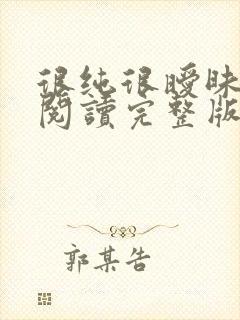 很純很曖昧
閱讀完整版
郭某告